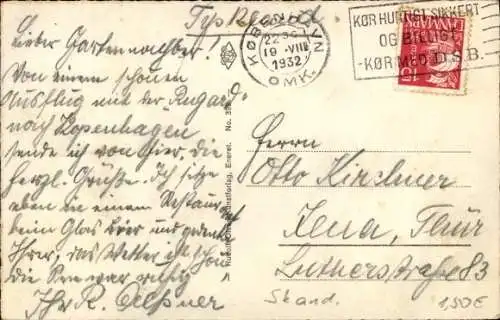 Tyskland
Lieber Gartennachbar!
Von einem schönen
Ausflug mit der "Rugard"
nach Kopenhagen
sende ich von hier die
herzl. Grüße. Ich sitze
eben in einem Restaurant
beim Glas Bier und gedenke
Ihrer, das Wetter ist schön
die See war ruhig
Ihr R.
KØBENHAVN
19.-VIII
1932
OMK.
KØR HURTIGT SIKKERT
OG BILLIGT
-KØR MED D.S.B.-
DANMARK
15
No. 38
Eneret.
Herrn
Otto Kirchner
Jena, Thür
Lutherstraße 83
Skand.
1,50€